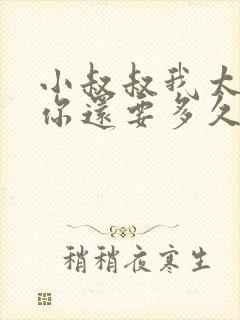 小叔叔我太
你還要多久
稍稍夜寒生